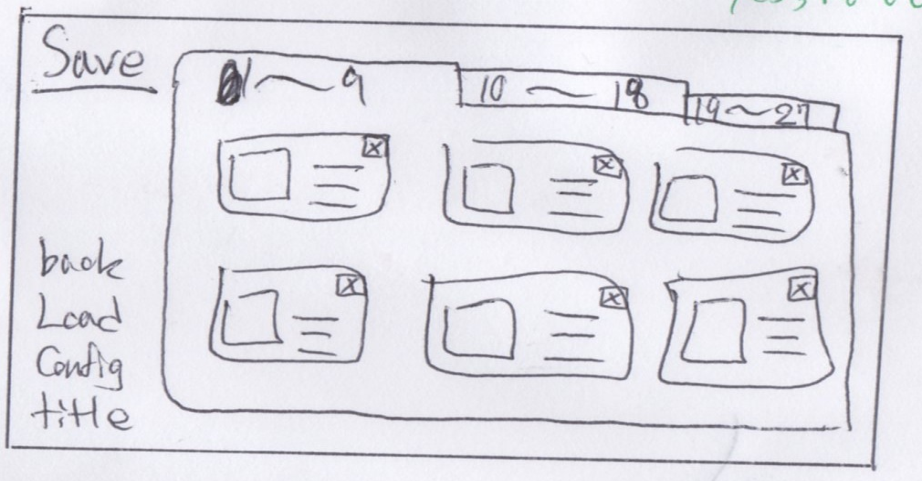 Save
1~9
10~18
19~27
back
Load
Config
title